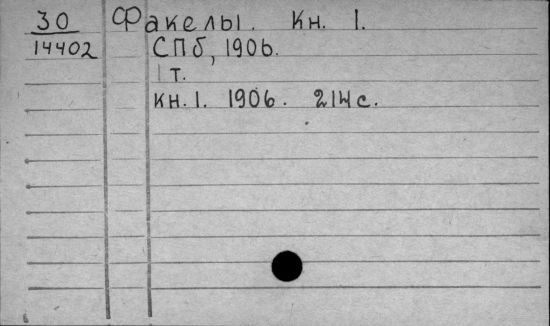 30 Факелы. Кн. 1.
14402 СПб, 1906.
1 т.
кн. 1. 1906. 214 с.